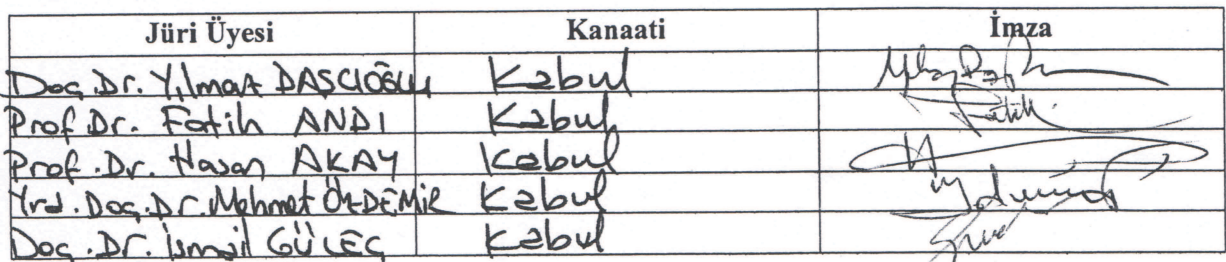 Jüri Üyesi Kanaati İmza
Doç. Dr. Yılmaz DAŞCIOĞLU Kabul
Prof. Dr. Fatih ANDI Kabul Fatih
Prof. Dr. Hasan AKAY Kabul
Yrd. Doç. Dr. Mehmet ÖZDEMİR Kabul
Doç. Dr. İsmail GÜLEÇ Kabul